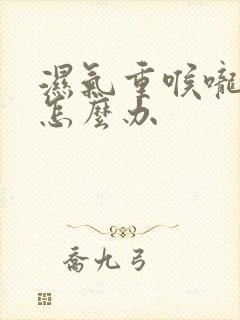 濕氣重喉嚨
怎麼办
喬九弓